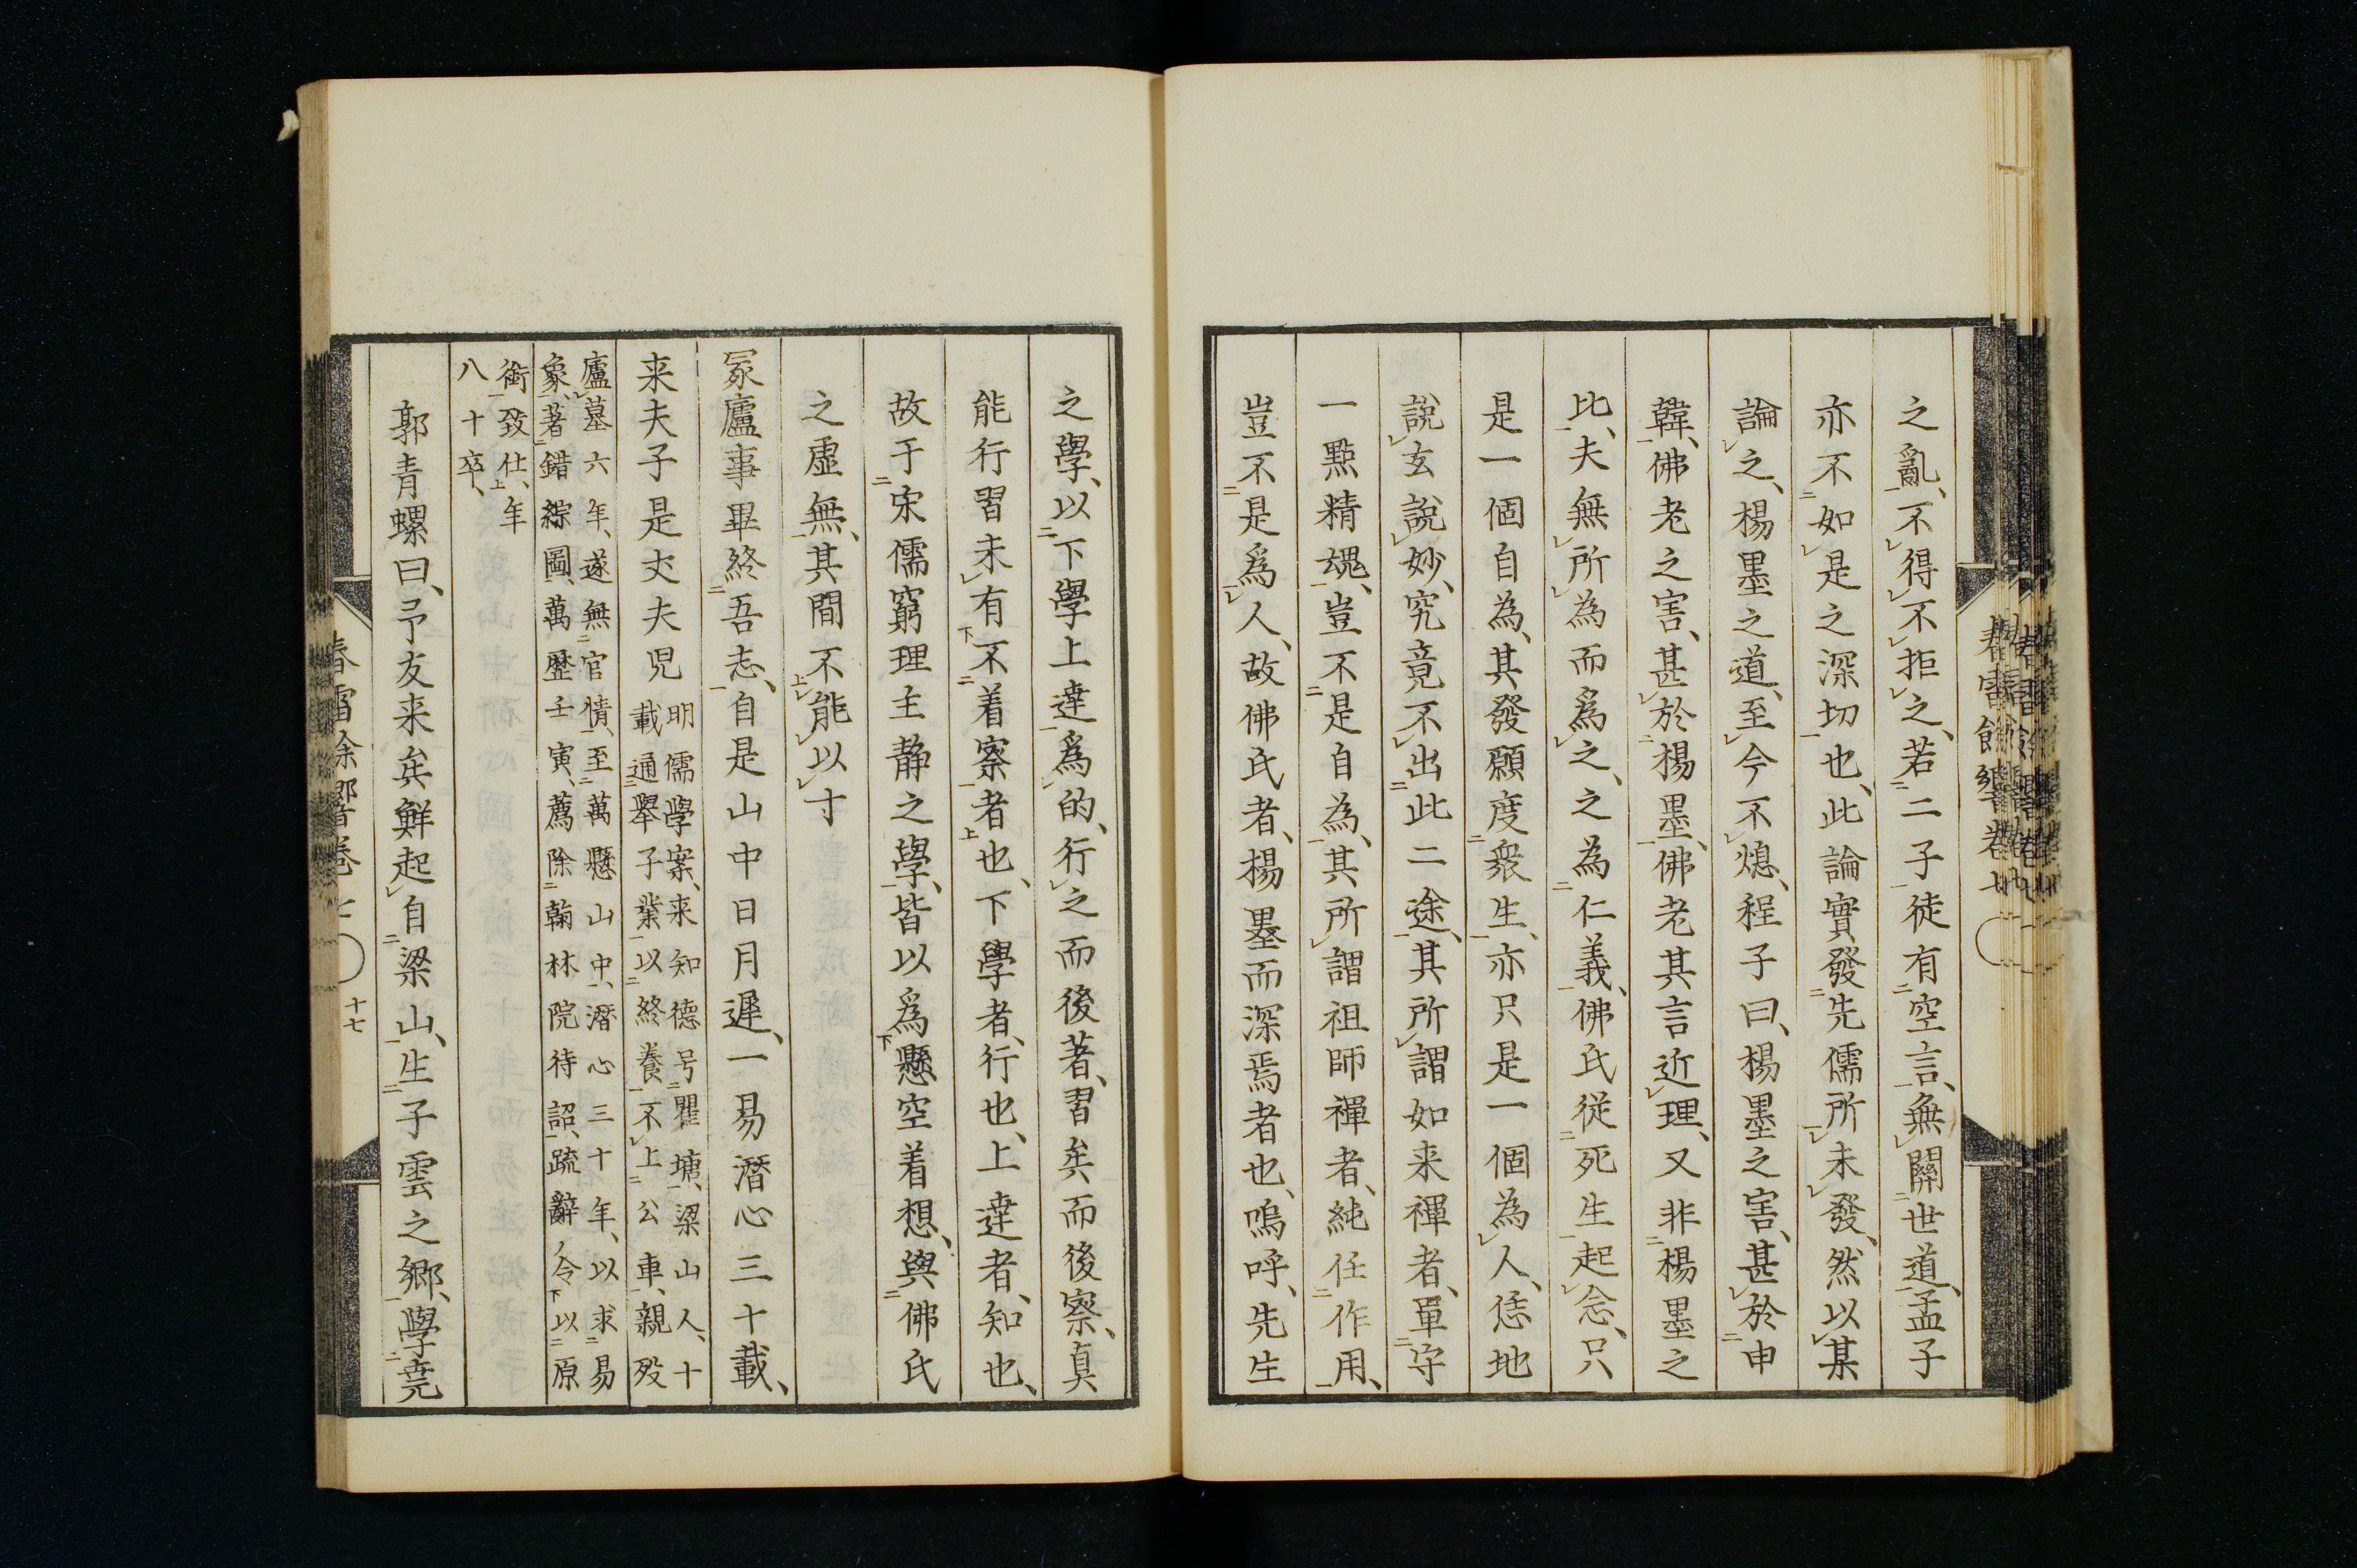 之亂、不得不拒之、若二子徒有空言、無關世道、孟子
亦不如是之深切也、此論實發先儒所未發、然以某
論之、楊墨之道、至今不熄、程子曰、楊墨之害、甚於申
韓、佛老之害、甚於楊墨、佛老其言近理、又非楊墨之
比、夫無所為而爲之、之為仁義、佛氏從死生起念、只
是一個自為、其發願度衆生、亦只是一個為人、恁地
說玄說妙、究竟不出此二途、其所謂如来禪者、單守
一點精魂、豈不是自為、其所謂祖師禪者、純任作用、
豈不是爲人、故佛氏者、楊墨而深焉者也、嗚呼、先生
之學、以下學上達爲的、行之而後著、習矣而後察、真
能行習未有不着察者也、下學者、行也、上達者、知也、
故于宋儒窮理主静之學、皆以爲懸空着想、與佛氏
之虛無、其間不能以寸
冢廬事畢終吾志、自是山中日月遲、一易潛心三十載、
来夫子是丈夫児
明儒學案、来知德号瞿塘、梁山人、十
載通舉子業、以終養不上公車、親歿
廬墓六年、遂無官情、至萬懸山中、潛心三十年、以求易
象、著錯綜圖、萬歷壬寅、薦除翰林院待詔、疏辭、令以原
銜致仕、年
八十卒、
郭青螺曰、予友来矣鮮起自梁山、生子雲之鄉、學堯
春雷餘響卷七
十七